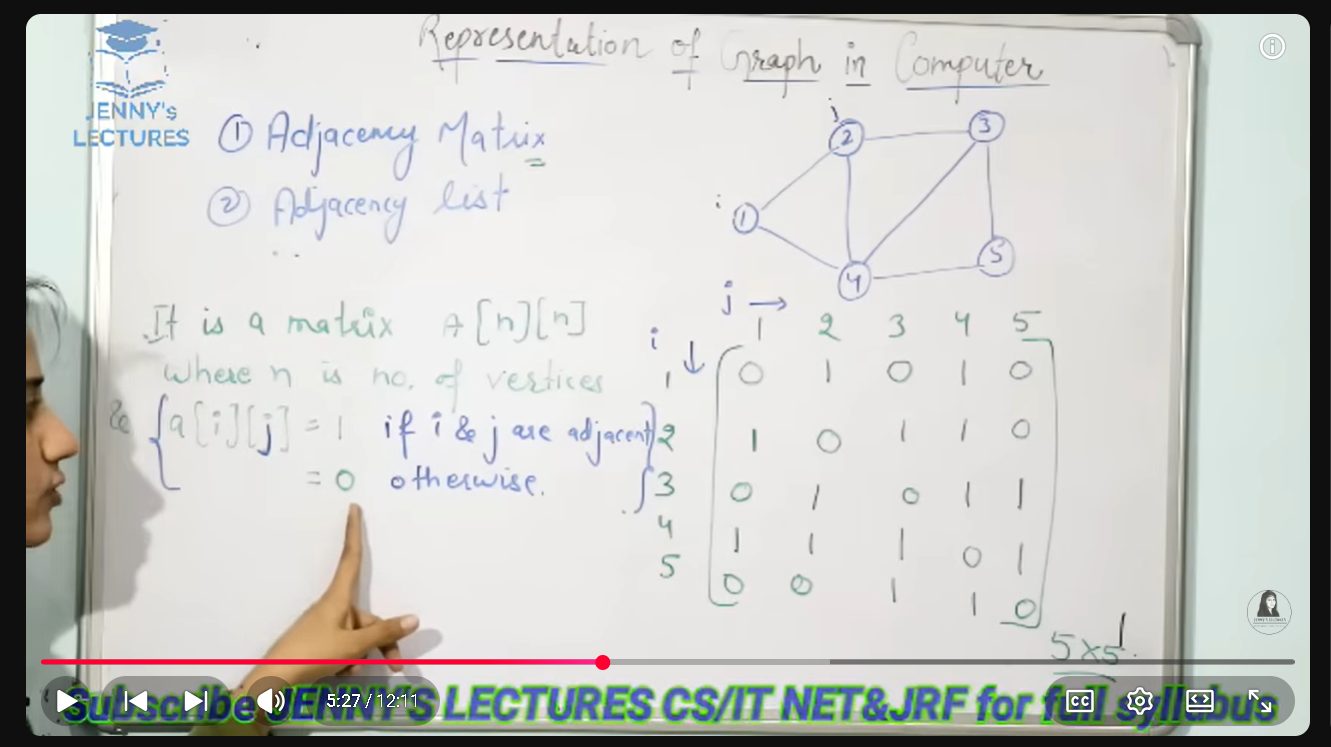 Representation of Graph in Computer
JENNY's
LECTURES
① Adjacency Matrix
② Adjacency list
1
2
3
4
5
i
j
It is a matrix A[n][n]
where n is no. of vertices
& { a[i][j] = 1 if i & j are adjacent }
= 0 otherwise.
j →
i ↓
1 2 3 4 5
1 0 1 0 1 0
2 1 0 1 1 0
3 0 1 0 1 1
4 1 1 1 0 1
5 0 0 1 1 0
5×5
Subscribe JENNY'S LECTURES CS/IT NET&JRF for full syllabus
5:27 / 12:11
CC